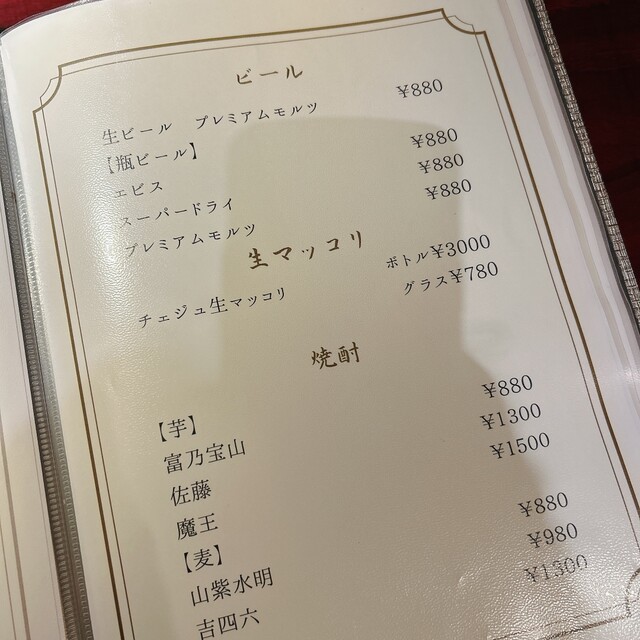 ビール
生ビール プレミアムモルツ ¥880
【瓶ビール】
エビス ¥880
スーパードライ ¥880
プレミアムモルツ ¥880
生マッコリ
チェジュ生マッコリ ボトル¥3000
グラス¥780
焼酎
【芋】
富乃宝山 ¥880
佐藤 ¥1300
魔王 ¥1500
【麦】
山紫水明 ¥880
吉四六 ¥980
¥1300